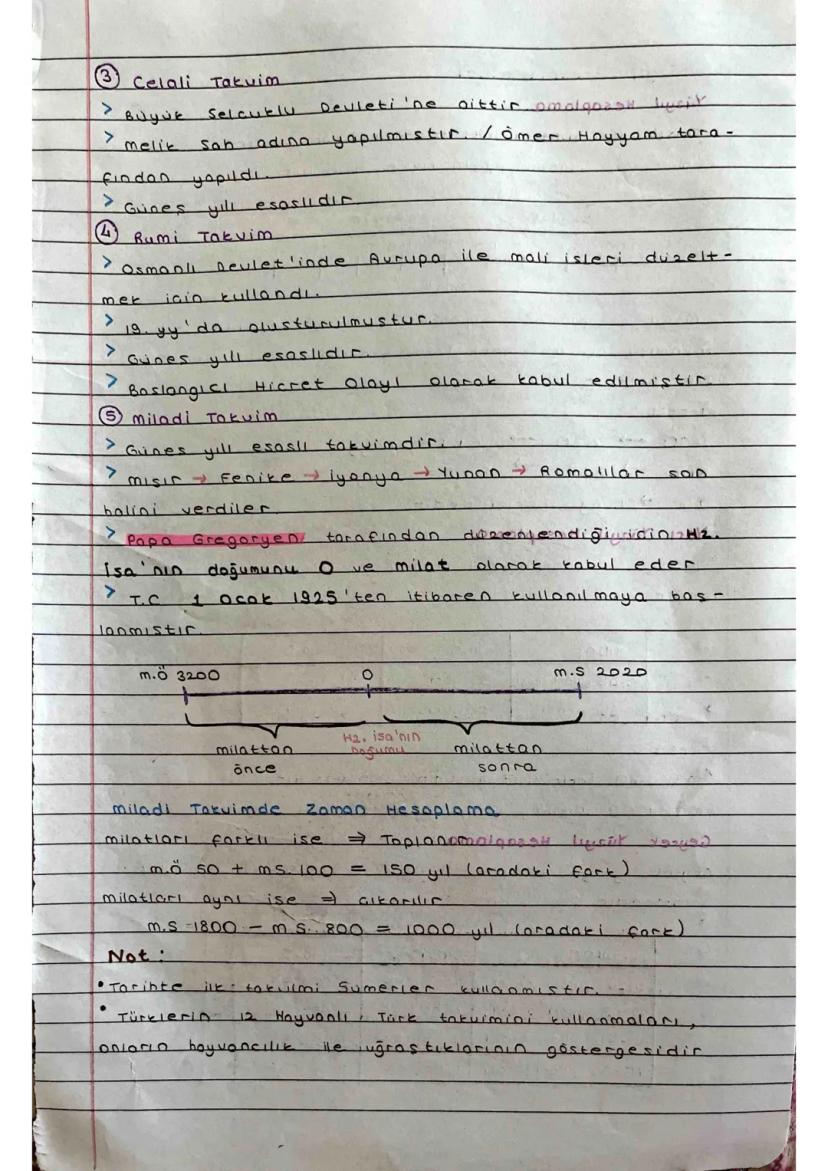 ③ Celali Takvim
> Büyük Selcuklu Devleti'ne aittir
> melik Sah adına yapılmıstır. / Ömer Hayyam tara-
fından yapıldı.
> Günes yılı esaslıdır.
④ Rumi Takvim
> Osmanlı Devlet'inde Avrupa ile mali isleri düzelt-
mek icin kullandı.
> 19. yy'da olusturulmustur.
> Günes yılı esaslıdır.
> Baslangıcı Hicret Olayı olarak kabul edilmistir.
⑤ miladi Takvim
> Günes yılı esaslı takvimdir.
> mısır → Fenike → iyonya → Yunan → Romalılar son
halini verdiler.
> Papa Gregoryen tarafından düzenlendiği icin Hz.
İsa'nın doğumunu 0 ve milat olarak kabul eder
> T.C 1 ocak 1925'ten itibaren kullanılmaya bas-
lanmıstır.
m.Ö 3200 0 m.S 2020
Hz. isa'nın
milattan Doğumu milattan
önce sonra
miladi Takvimde Zaman Hesaplama
milatları farklı ise ⇒ Toplanı
m.Ö 50 + ms. 100 = 150 yıl (aradaki fark)
milatları aynı ise ⇒ cıkarılır
m.S 1800 - m.S. 800 = 1000 yıl (aradaki fark)
Not :
• Tarihte ilk takvimi Sümerler kullanmıstır.
• Türklerin 12 Hayvanlı Türk takvimini kullanmaları,
onların hayvancılık ile uğrastıklarının göstergesidir